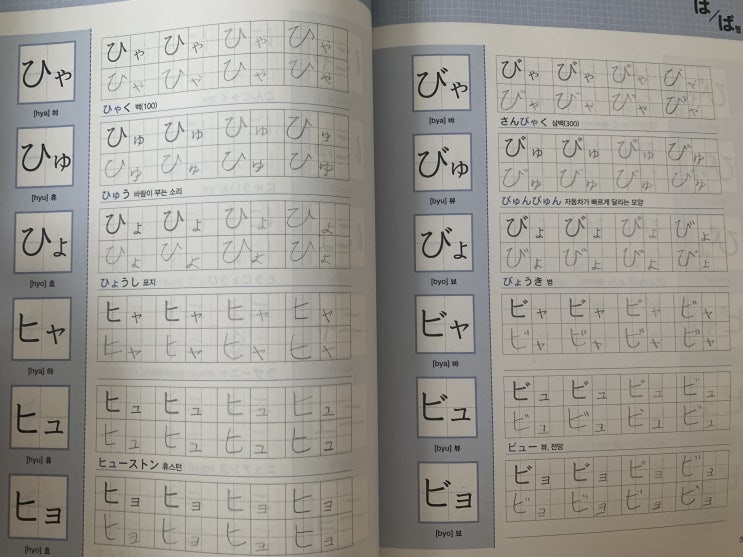 ひゃ
[hya] 햐
ひゃ ひゃ ひゃ ひゃ
ひゃ ひゃ ひゃ ひゃ
ひゃく 백(100)
ひゅ
[hyu] 휴
ひゅ ひゅ ひゅ ひゅ
ひゅ ひゅ ひゅ ひゅ
ひゅう 바람이 부는 소리
ひょ
[hyo] 효
ひょ ひょ ひょ ひょ
ひょ ひょ ひょ ひょ
ひょうし 표지
ヒャ
[hya] 햐
ヒャ ヒャ ヒャ ヒャ
ヒャ ヒャ ヒャ ヒャ
ヒュ
[hyu] 휴
ヒュ ヒュ ヒュ ヒュ
ヒュ ヒュ ヒュ ヒュ
ヒューストン 휴스턴
ヒョ
[hyo] 효
ヒョ ヒョ ヒョ ヒョ
ヒョ ヒョ ヒョ ヒョ
は/ば행
びゃ
[bya] 뱌
びゃ びゃ びゃ びゃ
びゃ びゃ びゃ びゃ
さんびゃく 삼백(300)
びゅ
[byu] 뷰
びゅ びゅ びゅ びゅ
びゅ びゅ びゅ びゅ
びゅんびゅん 자동차가 빠르게 달리는 모양
びょ
[byo] 뵤
びょ びょ びょ びょ
びょ びょ びょ びょ
びょうき 병
ビャ
[bya] 뱌
ビャ ビャ ビャ ビャ
ビャ ビャ ビャ ビャ
ビュ
[byu] 뷰
ビュ ビュ ビュ ビュ
ビュ ビュ ビュ ビュ
ビュー 뷰, 전망
ビョ
[byo] 뵤
ビョ ビョ ビョ ビョ
ビョ ビョ ビョ ビョ